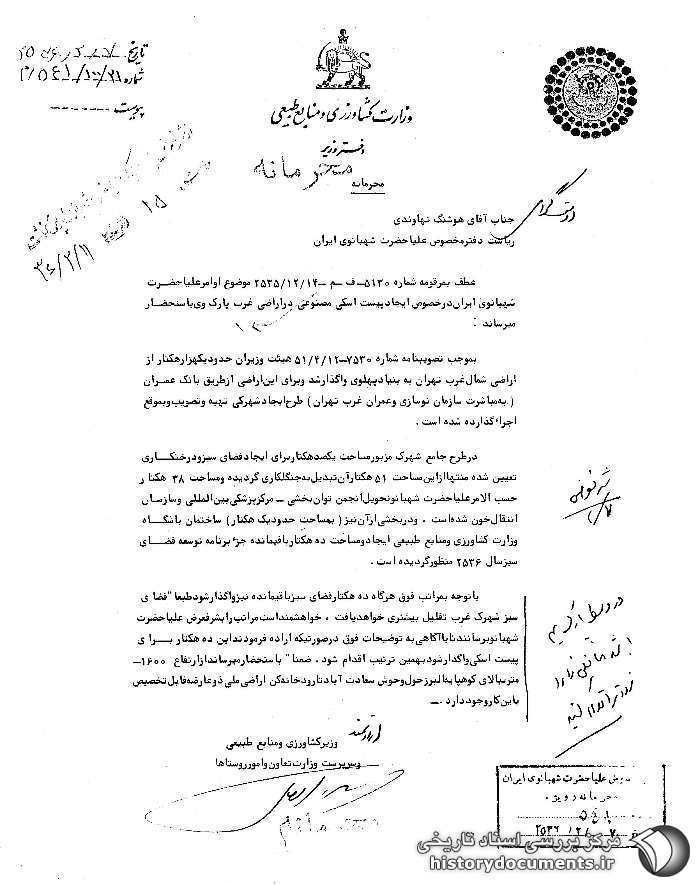 تاریخ
شماره
پیوست
وزارت کشاورزی و منابع طبیعی
دفتر وزیر
محرمانه
محرمانه
جناب آقای هوشنگ نهاوندی
ریاست دفتر مخصوص علیاحضرت شهبانوی ایران
عطف بمرقومه شماره ۵۱۳۰-ف-م-۲۵۳۵/۱۲/۱۴ موضوع اوامر علیاحضرت
شهبانوی ایران در خصوص ایجاد پیست اسکی مصنوعی در اراضی غرب پارک وی باستحضار
میرساند :
بموجب تصویبنامه شماره ۷۵۳۰-۵۱/۴/۱۲ هیئت وزیران حدود یکهزار هکتار از
اراضی شمال غرب تهران به بنیاد پهلوی واگذار شد و برای این اراضی از طریق بانک عمران
( به مباشرت سازمان نوسازی و عمران غرب تهران ) طرح ایجاد شهرکی تهیه و تصویب و بموقع
اجراء گذارده شده است .
در طرح جامع شهرک مزبور مساحت یکصد هکتار برای ایجاد فضای سبز و درختکاری
تعیین شده منتها از این مساحت ۵۱ هکتار آن تبدیل به جنگلکاری گردیده و مساحت ۳۸ هکتار
حسب الامر علیاحضرت شهبانو تحویل انجمن توان بخشی - مرکز پزشکی بین المللی و سازمان
انتقال خون شده است ، و در بخشی از آن نیز ( بمساحت حدود یک هکتار ) ساختمان باشگاه
وزارت کشاورزی و منابع طبیعی ایجاد و مساحت ده هکتار باقیمانده جزء برنامه توسعه فضای
سبز سال ۲۵۳۶ منظور گردیده است .
با توجه بمراتب فوق هرگاه ده هکتار فضای سبز باقیمانده نیز واگذار شود طبعا" فضای
سبز شهرک غرب تقلیل بیشتری خواهد یافت ، خواهشمند است مراتب را بشرفعرض علیاحضرت
شهبانو برسانند تا با آگاهی به توضیحات فوق در صورتیکه اراده فرمودند این ده هکتار برای
پیست اسکی واگذار شود بهمین ترتیب اقدام شود . ضمنا" باستحضار میرساند از ارتفاع ۱۶۰۰-
متر ببالای کوهپایه البرز حول و حوش سعادت آباد تا رودخانه کن اراضی ملی ذوعارضه قابل تخصیص
باین کار وجود دارد .-
ارادتمند
وزیر کشاورزی و منابع طبیعی
و سرپرست وزارت تعاون و امور روستاها
علیاحضرت شهبانوی ایران
محرمانه ویژه
مرکز بررسی اسناد تاریخی
historydocuments.ir